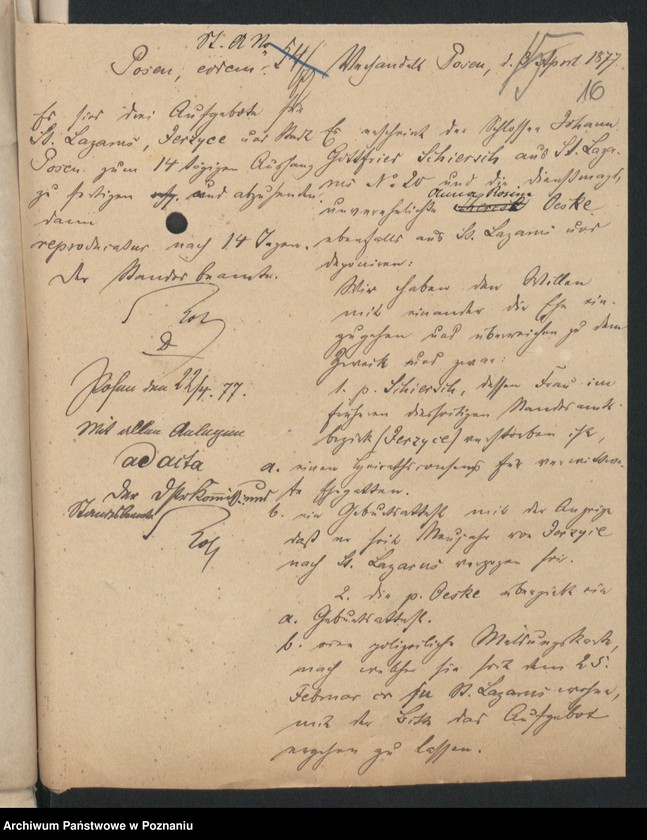 St. A No 54/77
Posen, eodem.
Es sind drei Aufgebote für
St. Lazarus, Jerzyce und Stadt
Posen zum 14 tägigen Aushang
zu fertigen und abzusenden.
dann
reproducatur nach 14 Tagen.
Der Standesbeamte.
D
Posen den 22/4. 77.
Mit allen Anlagen
ad acta
Der Distr. Kommiss. und
Standesbeamte
Verhandelt Posen, d. April 1877.
16
Es erscheint der Schlosser Johann
Gottfried Schiersch aus St. Laza-
rus No 20 und die Dienstmagd,
Anna Rosine
unverehelichte Oeske
ebenfalls aus St. Lazarus und
deponiren:
Wir haben den Willen
mit einander die Ehe ein-
zugehen und überreichen zu dem
Zweck und zwar:
1. p. Schiersch, dessen Frau im
früheren diesseitigen Standesamts-
bezirk (Jerzyce) verstorben ist,
a. einen Heirathsconsens für verwittwe-
te Ehegatten.
b. ein Geburtsattest mit der Anzeige
daß er seit Neujahr von Jerzyce
nach St. Lazarus verzogen sei.
2. die p. Oeske überreicht ein
a. Geburtsattest.
b. eine polizeiliche Meldungskarte,
nach welcher sie seit dem 25.
Februar cr in St. Lazarus wohne,
mit der Bitte das Aufgebot
ergehen zu lassen.
Archiwum Państwowe w Poznaniu